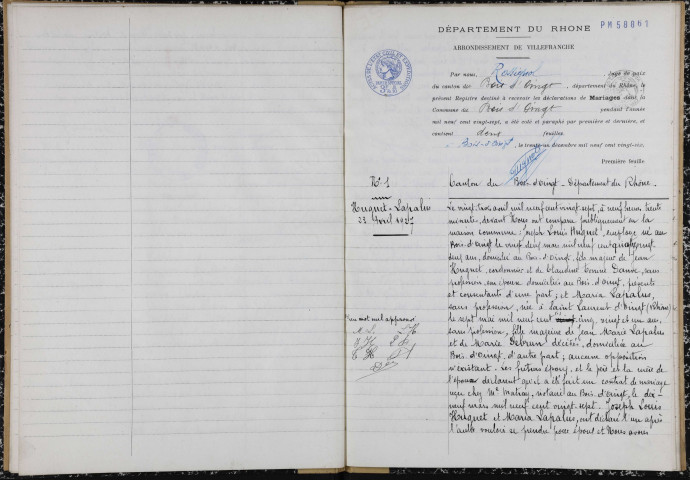 DÉPARTEMENT DU RHONE
PM58861
ARRONDISSEMENT DE VILLEFRANCHE
Par nous, Juge de paix
du canton de Bois d'Oingt, département du Rhône, le
présent Registre destiné à recevoir les déclarations de Mariages dans la
Commune de Bois d'Oingt pendant l'année
mil neuf cent vingt-sept, a été coté et paraphé par première et dernière, et
contient deux feuilles
Bois-d'Oingt, le trente un décembre mil neuf cent vingt-six.
Première feuille
N° 1
Canton du Bois-d'Oingt - Département du Rhône.
Huguet-Lapalus
23 Avril 1927
Le vingt trois avril mil neuf cent vingt-sept, à neuf heures trente
minutes, devant Nous ont comparu publiquement en la
maison commune: Joseph Louis Huguet, employé né au
Bois d'Oingt le vingt deux mars mil neuf cent
deux ans, domicilié au Bois d'Oingt, fils majeur de Jean
Huguet, cordonnier et de Claudine Danve, sans
profession, époux domiciliés au Bois d'Oingt, présents
et consentants d'une part; et Maria Lapalus,
sans profession, née à Saint Laurent d'Oingt (Rhône)
le sept mai mil neuf cent cinq, vingt et un ans,
sans profession, fille majeure de Jean Marie Lapalus
et de Marie Debrun décédés, domiciliée au
Bois d'Oingt, d'autre part; aucune opposition
n'existant. Les futurs époux, et le père et la mère de
l'époux déclarent qu'il a été fait un contrat de mariage
reçu chez Me, notaire au Bois d'Oingt, le dix-
neuf mars mil neuf cent vingt-sept. Joseph Louis
Huguet et Maria Lapalus, ont déclaré l'un après
l'autre vouloir se prendre pour époux et Nous avons
un mot nul approuvé
M. L. L. H.